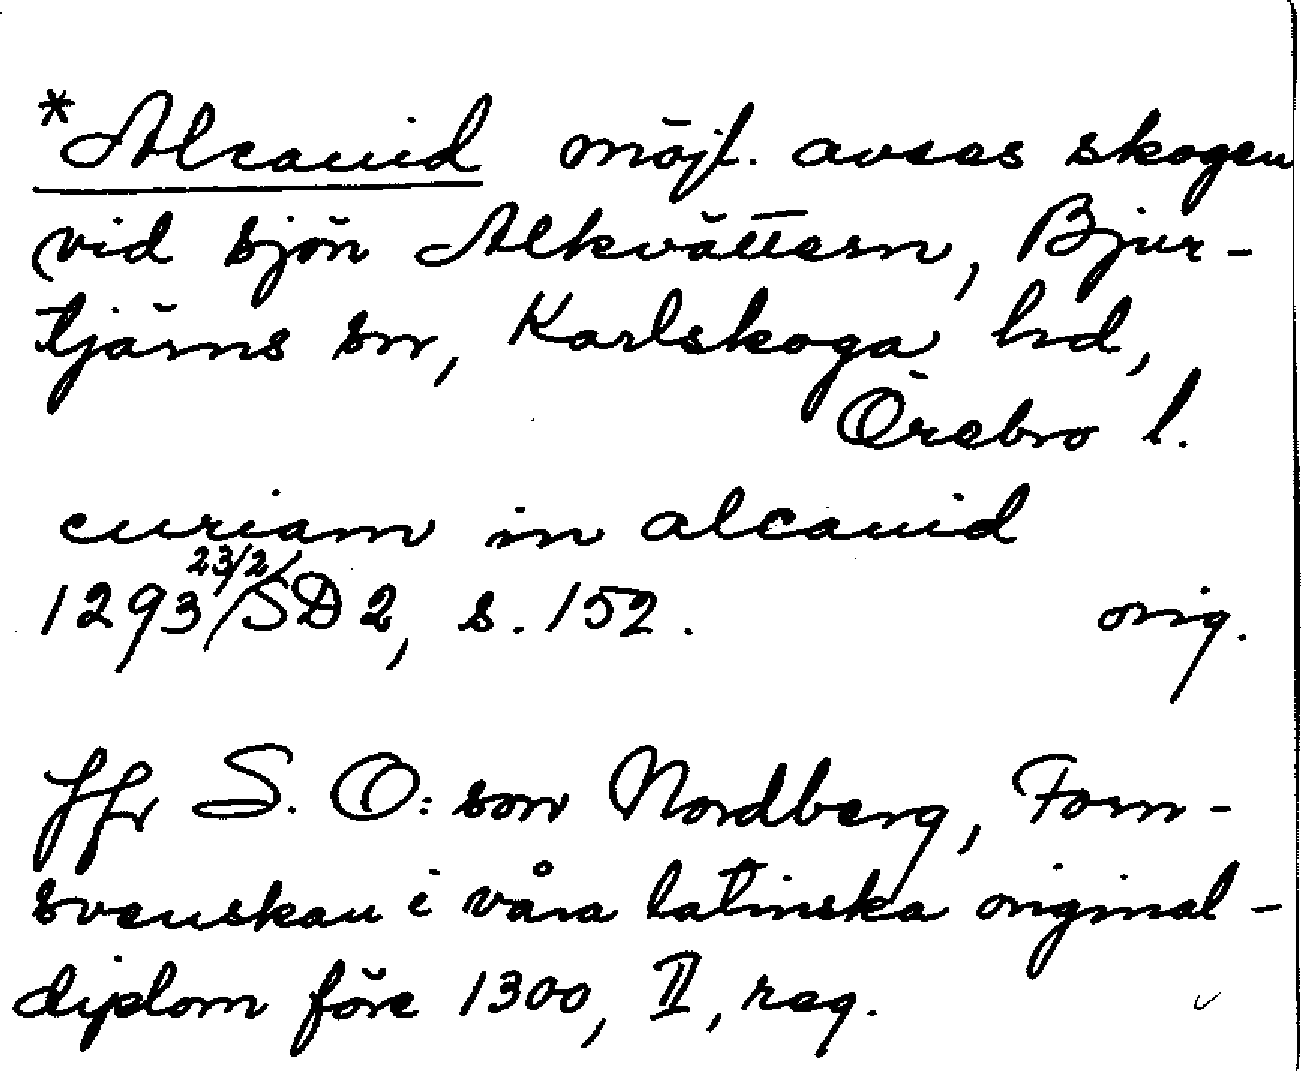 *Alcauid möjl. avses skogen
vid sjön Alkvättern, Bjur-
tjärns sn, Karlskoga hd,
Örebro l.
curiam in alcauid
1293 23/2 SD 2, s. 152. orig.
Jfr S. O:son Nordberg, Forn-
svenskan i våra latinska original-
diplom före 1300, II, reg.